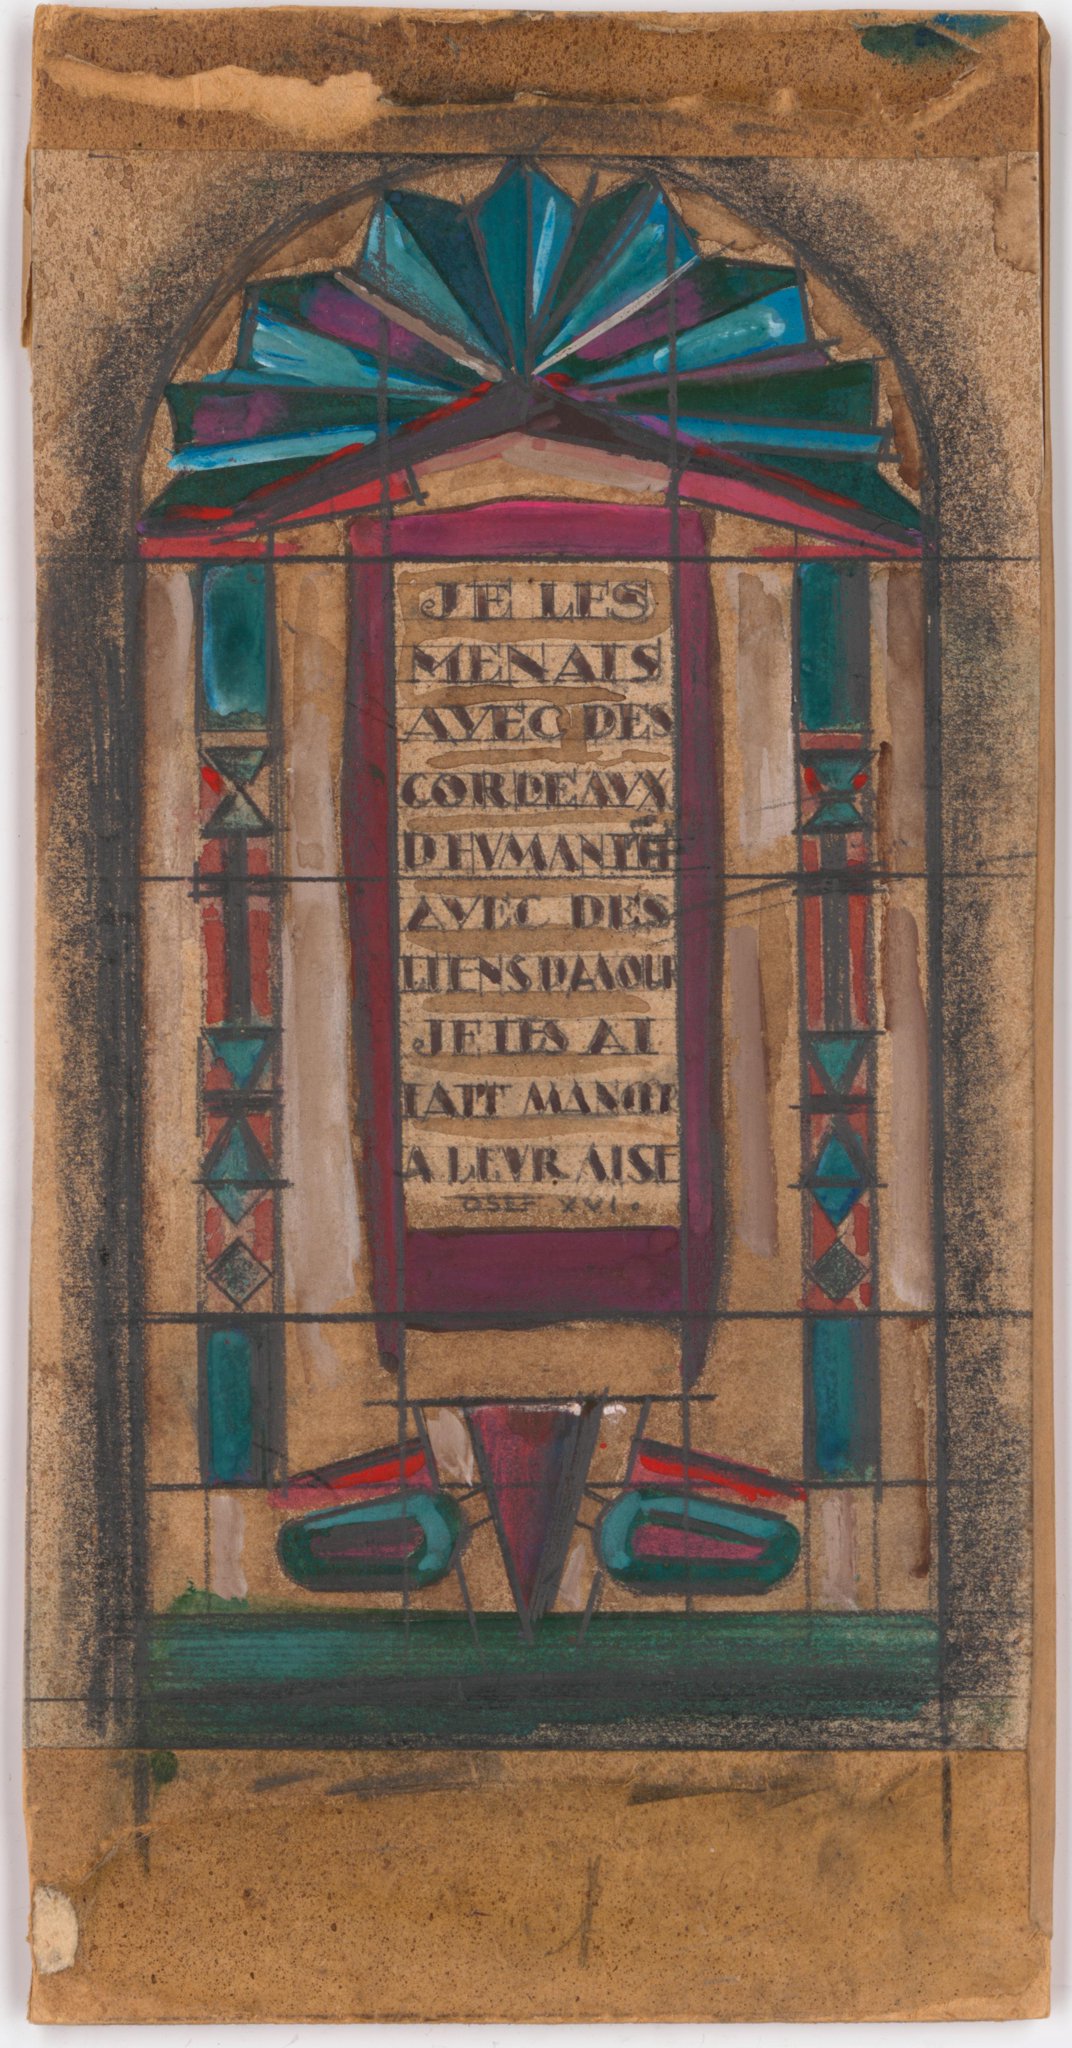 JE LES
MENAIS
AVEC DES
CORDEAVX
D'HVMANITÉ
AVEC DES
LIENS D'AMOUR
JE LES AI
FAIT MANGER
A LEVR AISE
OSEE XVI.